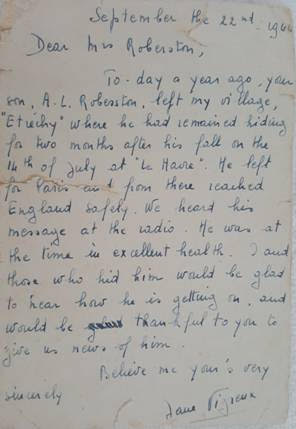 September the 22nd. 1944
Dear Mrs Roberston,
To-day a year ago, your
son, A.L. Roberston, left my village,
"Etrechy" where he had remained hiding
for two months after his fall on the
14th of July at "Le Havre". He left
for Paris and from there reached
England safely. We heard his
message at the radio. He was at
the time in excellent health. I and
those who hid him would be glad
to hear how he is getting on, and
would be thankful to you to
give us news of him.
Believe me your's very
sincerely
Jane Vigreux